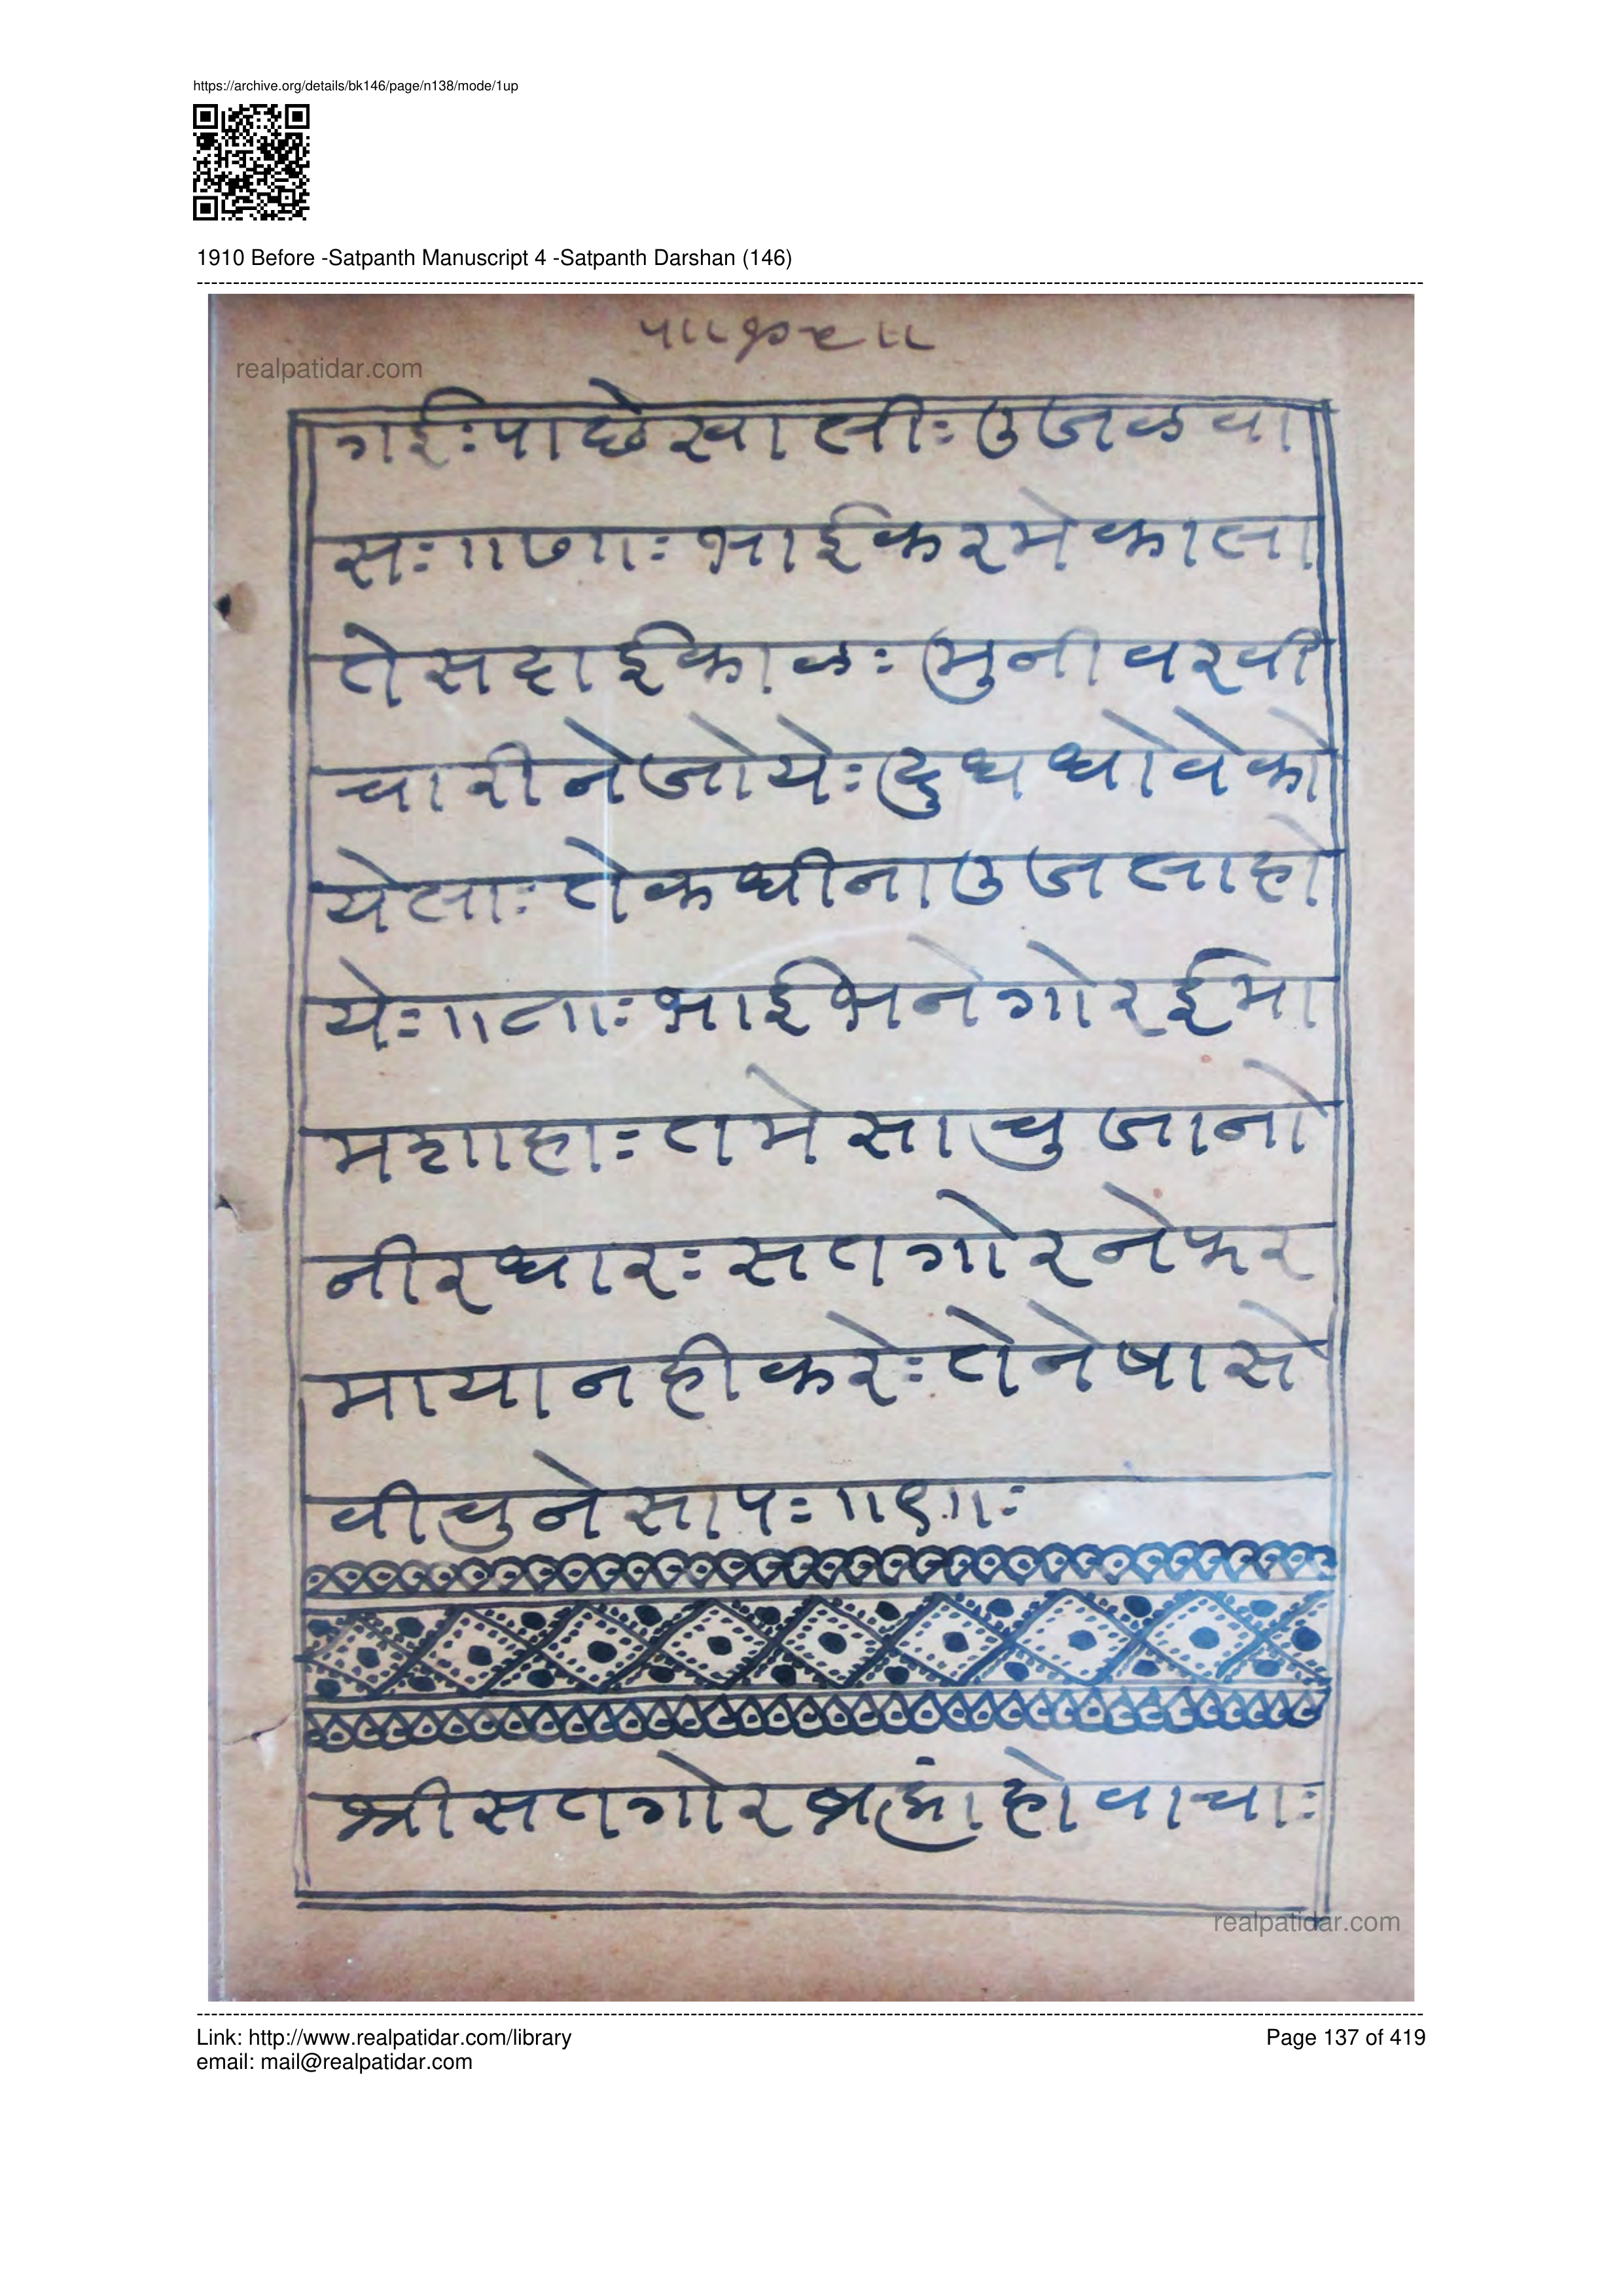 https://archive.org/details/bk146/page/n138/mode/1up
1910 Before -Satpanth Manuscript 4 -Satpanth Darshan (146)
realpatidar.com
गई:पाछेखाली:उजळवा
स:॥७॥:भाईकरमेकाला
तेसदाईकाळ:मुनीवरवी
चारीनेजोये:दुधधोवेको
येला:तेकधीनाउजलाहो
ये:॥८॥:भाईभनेगोरईमा
मशाहा:तमेसाचुजानो
नीरधार:सतगोरनेफर
मायानहीकरे:तेनेषासे
वीचुनेसाप:॥९॥:
श्रीसतगोरब्रह्मांहोवाचा:
realpatidar.com
Link: http://www.realpatidar.com/library
Page 137 of 419
email: mail@realpatidar.com